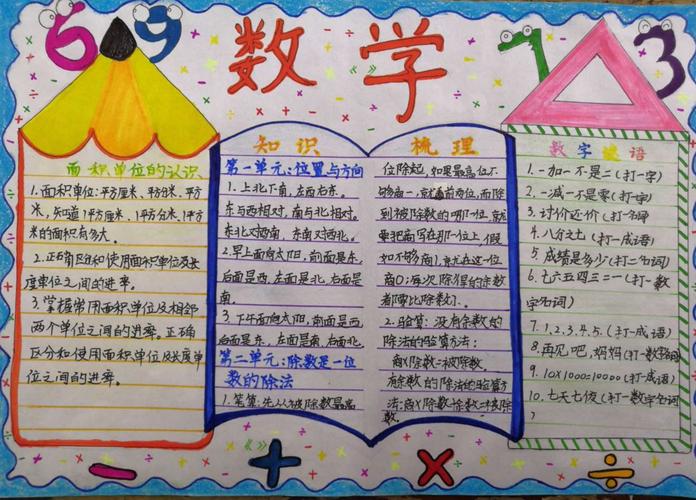 6 9 数学 7 3
面积单位的认识
1.面积单位:平方厘米、平方分米、平方
米,知道1平方厘米、1平方分米、1平方
米的面积有多大。
2.正确区分和使用面积单位及长
度单位之间的进率。
3.掌握常用面积单位及相邻
两个单位之间的进率。正确
区分和使用面积单位及长度单
位之间的进率。
知识
第一单元:位置与方向
1.上北下南,左西右东。
东与西相对,南与北相对。
东北对西南,东南对西北。
2.早上面向太阳,前面是东,
后面是西,左面是北,右面是
南。
3.下午面向太阳,前面是西
后面是东,左面是南,右面是北。
第二单元:除数是一位
数的除法
1.笔算:先从被除数最高
梳理
位除起,如果最高位不
够商一,就看前两位,而除
到被除数的哪一位,就
要把商写在那一位上,假
如不够商1,就在这一位
商0;每次除得的余数
都要比除数小。
2.验算:没有余数的
除法的验算方法:
商×除数=被除数。
有余数的除法的验算方
法:商×除数+余数=被除
数。
数字谜语
1.一加一不是二(打一字)
2.一减一不是零(打一字)
3.讨价还价(打一名词)
4.八分之七(打一成语)
5.成绩是多少(打一名词)
6.七六五四三二一(打一数
字名词)
7.1、2、3、4、5.(打一成语)
8.再见吧,妈妈(打一数学名词)
9.10×1000=10000(打一成语)
10.七天七夜(打一数字名词
)
− + × ÷